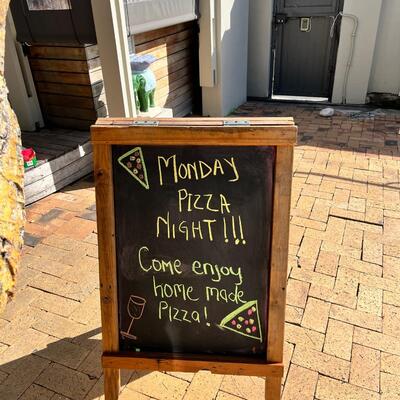 Monday
Pizza
Night!!!
Come enjoy
home made
Pizza!